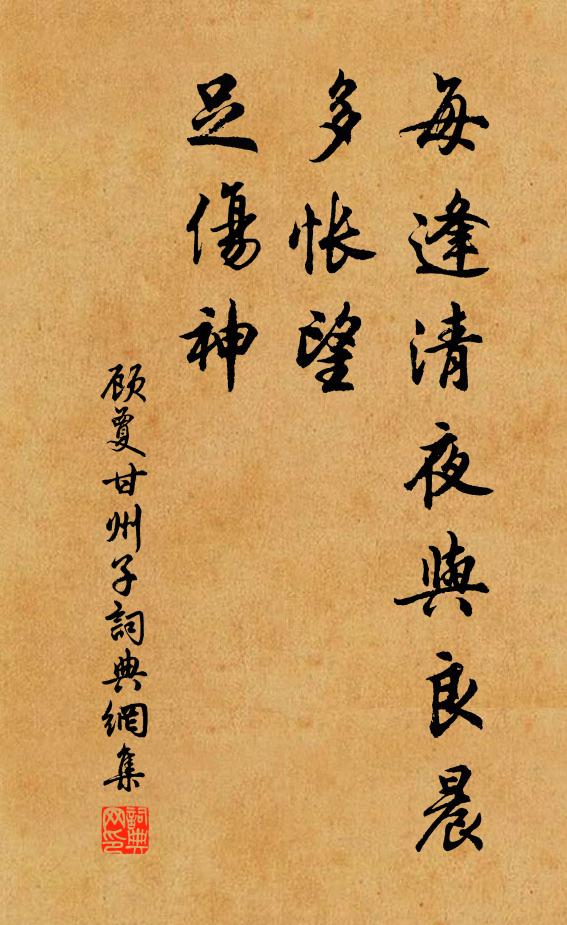 每逢清夜與良晨
多悵望
足傷神
顾夐甘州子詞典網集
詞典网印